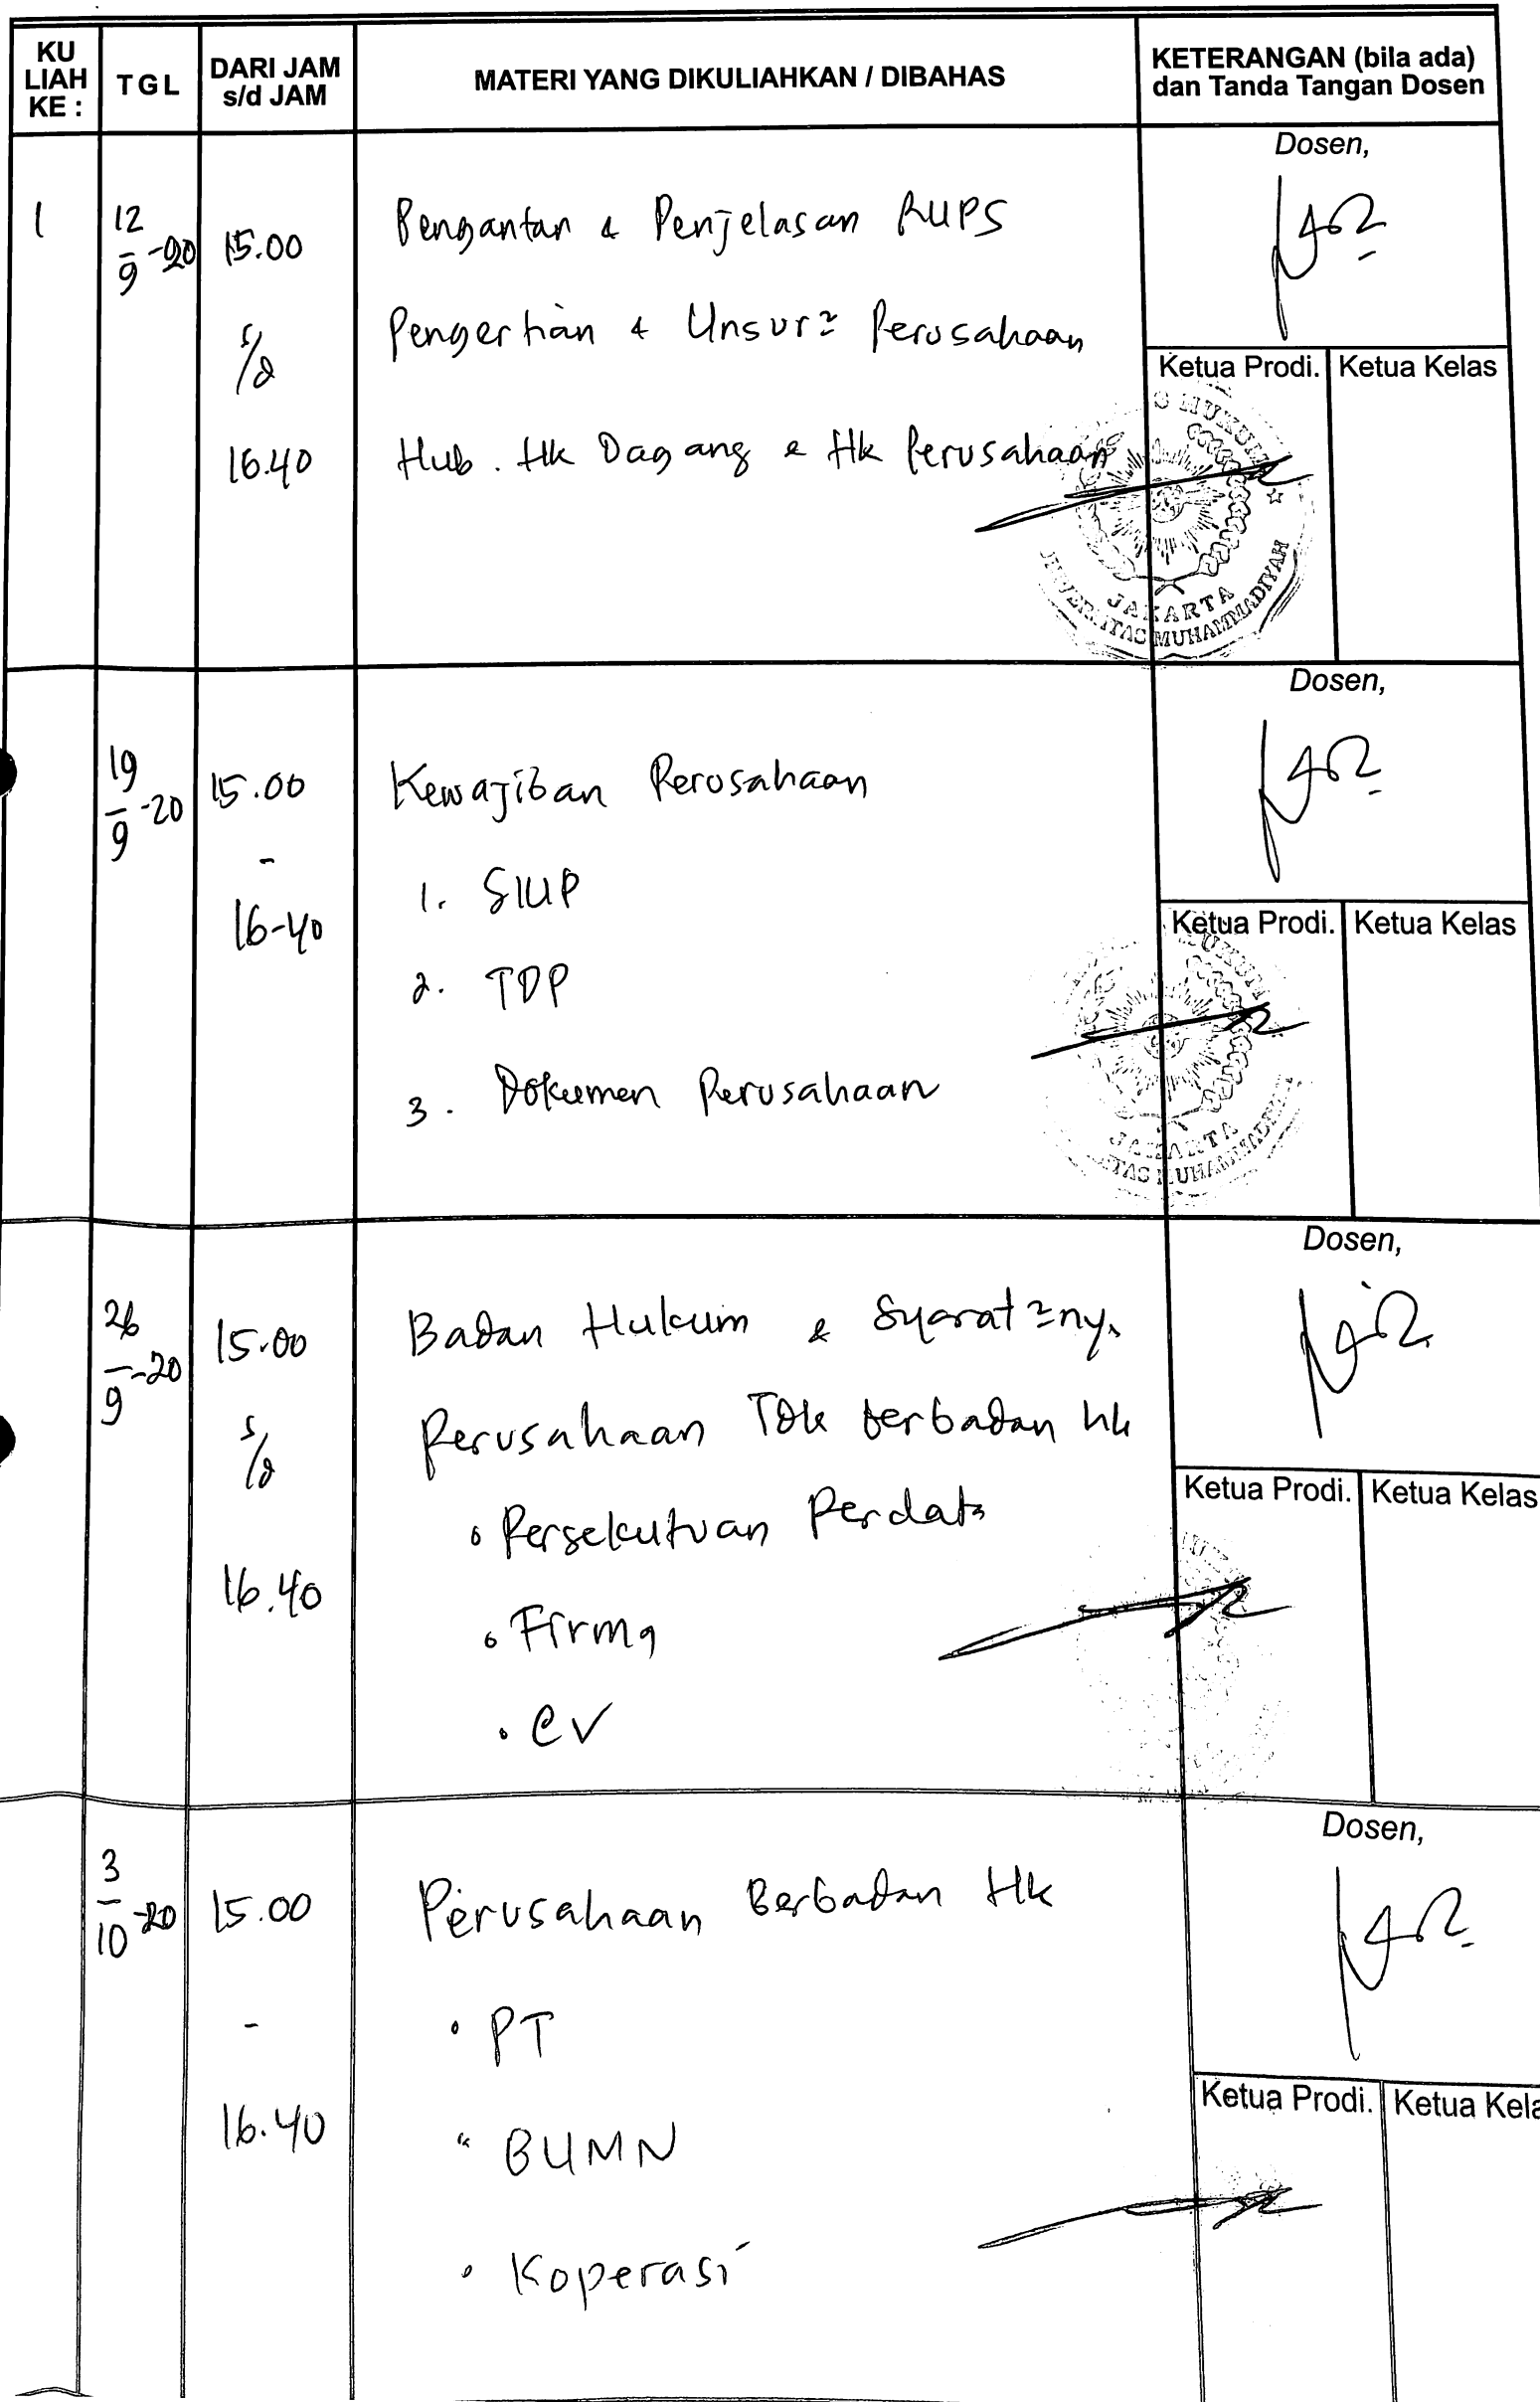 KU LIAH KE :
TGL
DARI JAM s/d JAM
MATERI YANG DIKULIAHKAN / DIBAHAS
KETERANGAN (bila ada) dan Tanda Tangan Dosen
1
12/9-20
15.00
s/d
16.40
Pengantar & Penjelasan RUPS
Pengertian & Unsur2 Perusahaan
Hub. Hk Dagang & Hk Perusahaan
Dosen,
Ketua Prodi.
Ketua Kelas
HUKUM
JAKARTA
MUHAMMADIYAH
19/9-20
15.00
-
16-40
Kewajiban Perusahaan
1. SIUP
2. TDP
3. Dokumen Perusahaan
Dosen,
Ketua Prodi.
Ketua Kelas
HUKUM
JAKARTA
26/9-20
15.00
s/d
16.40
Badan Hukum & Syarat2nya
Perusahaan Tdk berbadan hk
• Persekutuan Perdata
• Firma
• CV
Dosen,
Ketua Prodi.
Ketua Kelas
3/10-20
15.00
-
16.40
Perusahaan Berbadan Hk
• PT
" BUMN
• Koperasi
Dosen,
Ketua Prodi.
Ketua Kela